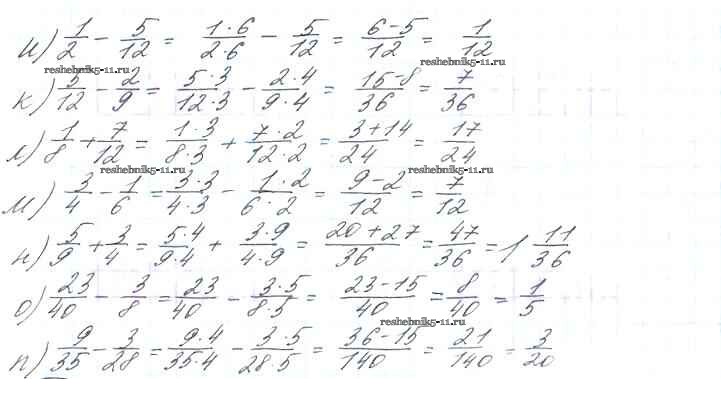 и) 1/2 - 5/12 = 1·6/2·6 - 5/12 = 6-5/12 = 1/12
reshebnik5-11.ru
к) 5/12 - 2/9 = 5·3/12·3 - 2·4/9·4 = 15-8/36 = 7/36
reshebnik5-11.ru
л) 1/8 + 7/12 = 1·3/8·3 + 7·2/12·2 = 3+14/24 = 17/24
reshebnik5-11.ru
м) 3/4 - 1/6 = 3·3/4·3 - 1·2/6·2 = 9-2/12 = 7/12
н) 5/9 + 3/4 = 5·4/9·4 + 3·9/4·9 = 20+27/36 = 47/36 = 1 11/36
о) 23/40 - 3/8 = 23/40 - 3·5/8·5 = 23-15/40 = 8/40 = 1/5
reshebnik5-11.ru
п) 9/35 - 3/28 = 9·4/35·4 - 3·5/28·5 = 36-15/140 = 21/140 = 3/20